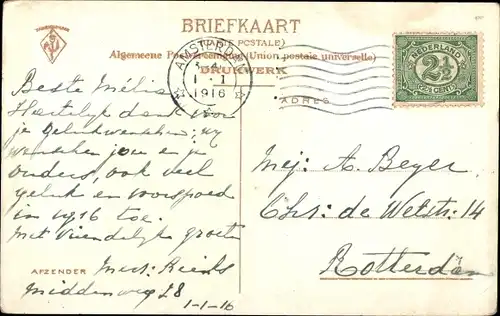 BRIEFKAART
(CARTE POSTALE)
Algemeene Postvereeniging (Union postale universelle)
DRUKWERK
ADRES
AMSTERDAM
1.1
1916
NEDERLAND
2½
CENT
Beste
Hartelijk dank voor
je gelukwenschen; wij
wenschen jou en je
ouders, ook veel
geluk en voorspoed
in 1916 toe.
Met vriendelijke groeten
AFZENDER
Middenweg 28
1-1-16
Mej: A. Beyer
Chr: de Wetstr: 14
Rotterdam